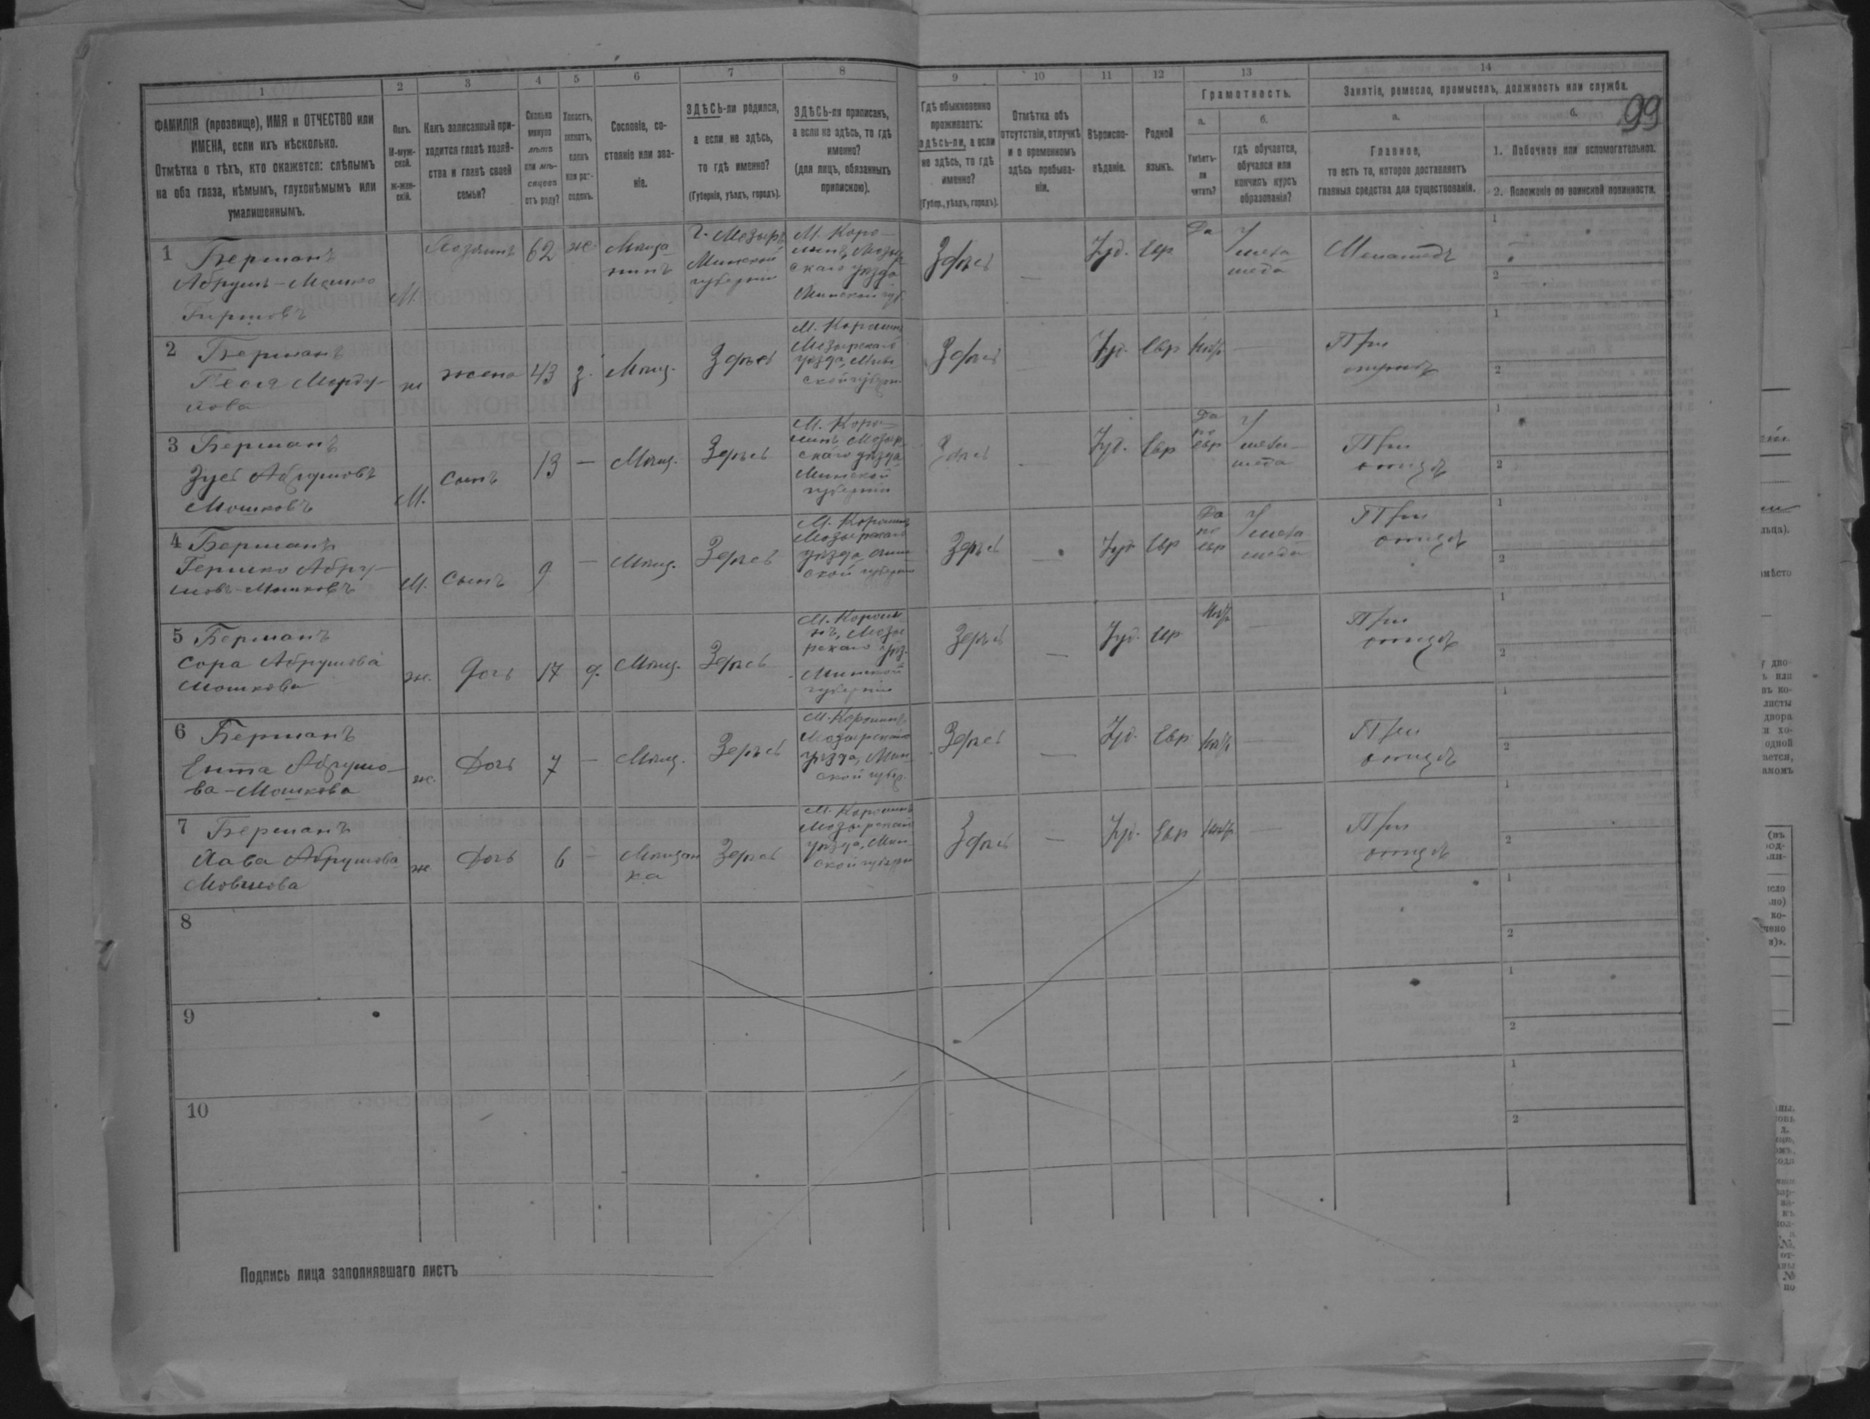 99
1 2 3 4 5 6 7 8 9 10 11 12 13 14
ФАМИЛІЯ (прозвище), ИМЯ и ОТЧЕСТВО или
ИМЕНА, если ихъ нѣсколько.
Отмѣтка о тѣхъ, кто окажется: слѣпымъ
на оба глаза, нѣмымъ, глухонѣмымъ или
умалишеннымъ.
Полъ.
М-муж-
ской.
ж-жен-
скій.
Какъ записанный при-
ходится главѣ хозяй-
ства и главѣ своей
семьи?
Сколько
минуло
лѣтъ
или мѣ-
сяцевъ
отъ роду?
Холостъ,
женатъ,
вдовъ
или раз-
веденъ.
Сословіе, со-
стояніе или зва-
ніе.
ЗДѢСЬ-ли родился,
а если не здѣсь,
то гдѣ именно?
(Губернія, уѣздъ, городъ).
ЗДѢСЬ-ли приписанъ,
а если не здѣсь, то гдѣ
именно?
(для лицъ, обязанныхъ
припискою).
Гдѣ обыкновенно
проживаетъ:
здѣсь-ли, а если
не здѣсь, то гдѣ
именно?
(Губер., уѣздъ, городъ).
Отмѣтка объ
отсутствіи, отлучкѣ
и о временномъ
здѣсь пребыва-
ніи.
Вѣроиспо-
вѣданіе.
Родной
языкъ.
Грамотность.
а.
Умѣетъ-
ли
читать?
б.
гдѣ обучается,
обучался или
кончилъ курсъ
образованія?
Занятіе, ремесло, промыселъ, должность или служба.
а.
Главное,
то есть то, которое доставляетъ
главныя средства для существованія.
б.
1. Побочное или вспомогательное.
2. Положеніе по воинской повинности.
1 Берманъ
Абрумъ-Мошко
Гиршовъ
М. Хозяинъ 62 ж. Мѣща
нинъ
г. Мозырь
Минской
губерніи
М. Коро-
линъ, Мозыр
скаго уѣзда
Минской губ
Здѣсь — Іуд. Евр Да У мела
меда
Меламедъ
1
2
2 Берманъ
Песля Морду-
хова
ж жена 43 з. Мѣщ. Здѣсь
М. Королинъ
Мозырскаго
уѣзда, Мин
ской губерн
Здѣсь — Іуд. Евр Нѣтъ — При
мужѣ
1
2
3 Берманъ
Зусь Абрумовъ
Мошковъ
М. сынъ 13 — Мѣщ. Здѣсь
М. Коро-
линъ, Мозыр
скаго уѣзда
Минской
губерніи
Здѣсь — Іуд. Евр Да
по
евр У мела-
меда
При
отцѣ
1
2
4 Берманъ
Гершко Абру-
мовъ-Мошковъ
М. сынъ 9 — Мѣщ. Здѣсь
М. Королинъ
Мозырскаго
уѣзда, Мин
ской губерн
Здѣсь — Іуд Евр Да
по
евр У мела
меда
При
отцѣ
1
2
5 Берманъ
Сора Абрумова
Мошкова
ж. дочь 17 д. Мѣщ. Здѣсь
М. Королин
нъ, Мозы
рскаго уѣз.
Минской
губерніи
Здѣсь — Іуд. Евр Нѣтъ — При
отцѣ
1
2
6 Берманъ
Ента Абрумо-
ва-Мошкова
ж. Дочь 7 — Мѣщ. Здѣсь
М. Королинъ
Мозырскаго
уѣзда, Мин
ской губер.
Здѣсь — Іуд. Евр Нѣтъ При
отцѣ
1
2
7 Берманъ
Хава Абрумова
Мовшова
ж Дочь 6 — Мѣщан
ка
Здѣсь
М. Королинъ
Мозырскаго
уѣзда, Мин
ской губерн
Здѣсь — Іуд. Евр Нѣтъ — При
отцѣ
1
2
8
1
2
9
1
2
10
1
2
Подпись лица заполнявшаго листъ